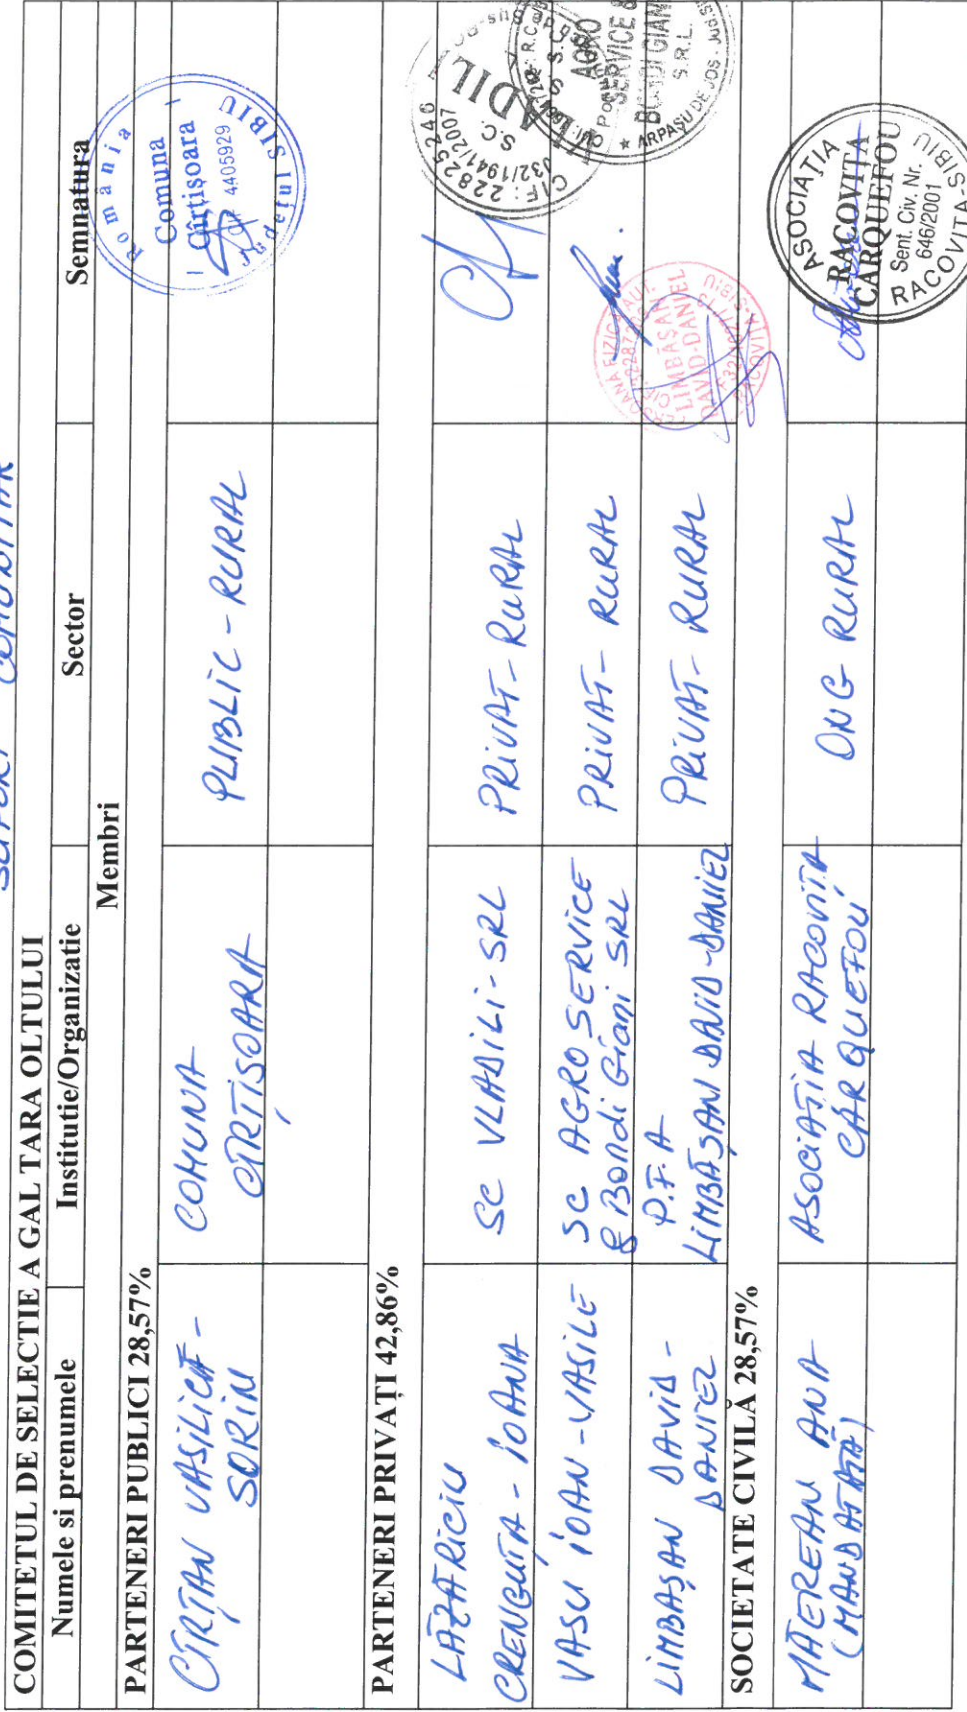 SUPORT COMUNITAR
COMITETUL DE SELECTIE A GAL TARA OLTULUI
Numele si prenumele Institutie/Organizatie Sector Semnatura
Membri
PARTENERI PUBLICI 28,57%
CÎRȚAN VASILICĂ - SORIN COMUNA CÎRȚIȘOARA PUBLIC - RURAL
România
Comuna
Cîrțișoara
CIF 4405929
Județul SIBIU
PARTENERI PRIVAȚI 42,86%
LĂZĂRICIU
CRENGUȚA - IOANA SC VLADILI - SRL PRIVAT - RURAL
CIF: 22825246
J32/1941/2007
S.C.
ADIL
VASIU IOAN - VASILE SC AGRO SERVICE
& Bondi Giani SRL PRIVAT - RURAL
AGRO
SERVICE &
BONDI GIAN
S.R.L.
ARPAȘU DE JOS
LIMBĂȘAN DAVID -
DANIEL P.F.A
LIMBĂȘAN DAVID - DANIEL PRIVAT - RURAL
LIMBĂȘAN
DAVID-DANIEL
SOCIETATE CIVILĂ 28,57%
MAEREAN ANA
(MANDATATĂ) ASOCIAȚIA RACOVIȚA
CARQUEFOU ONG RURAL
ASOCIAȚIA
RACOVIȚA
CARQUEFOU
Sent. Civ. Nr.
646/2001
RACOVITA-SIBIU